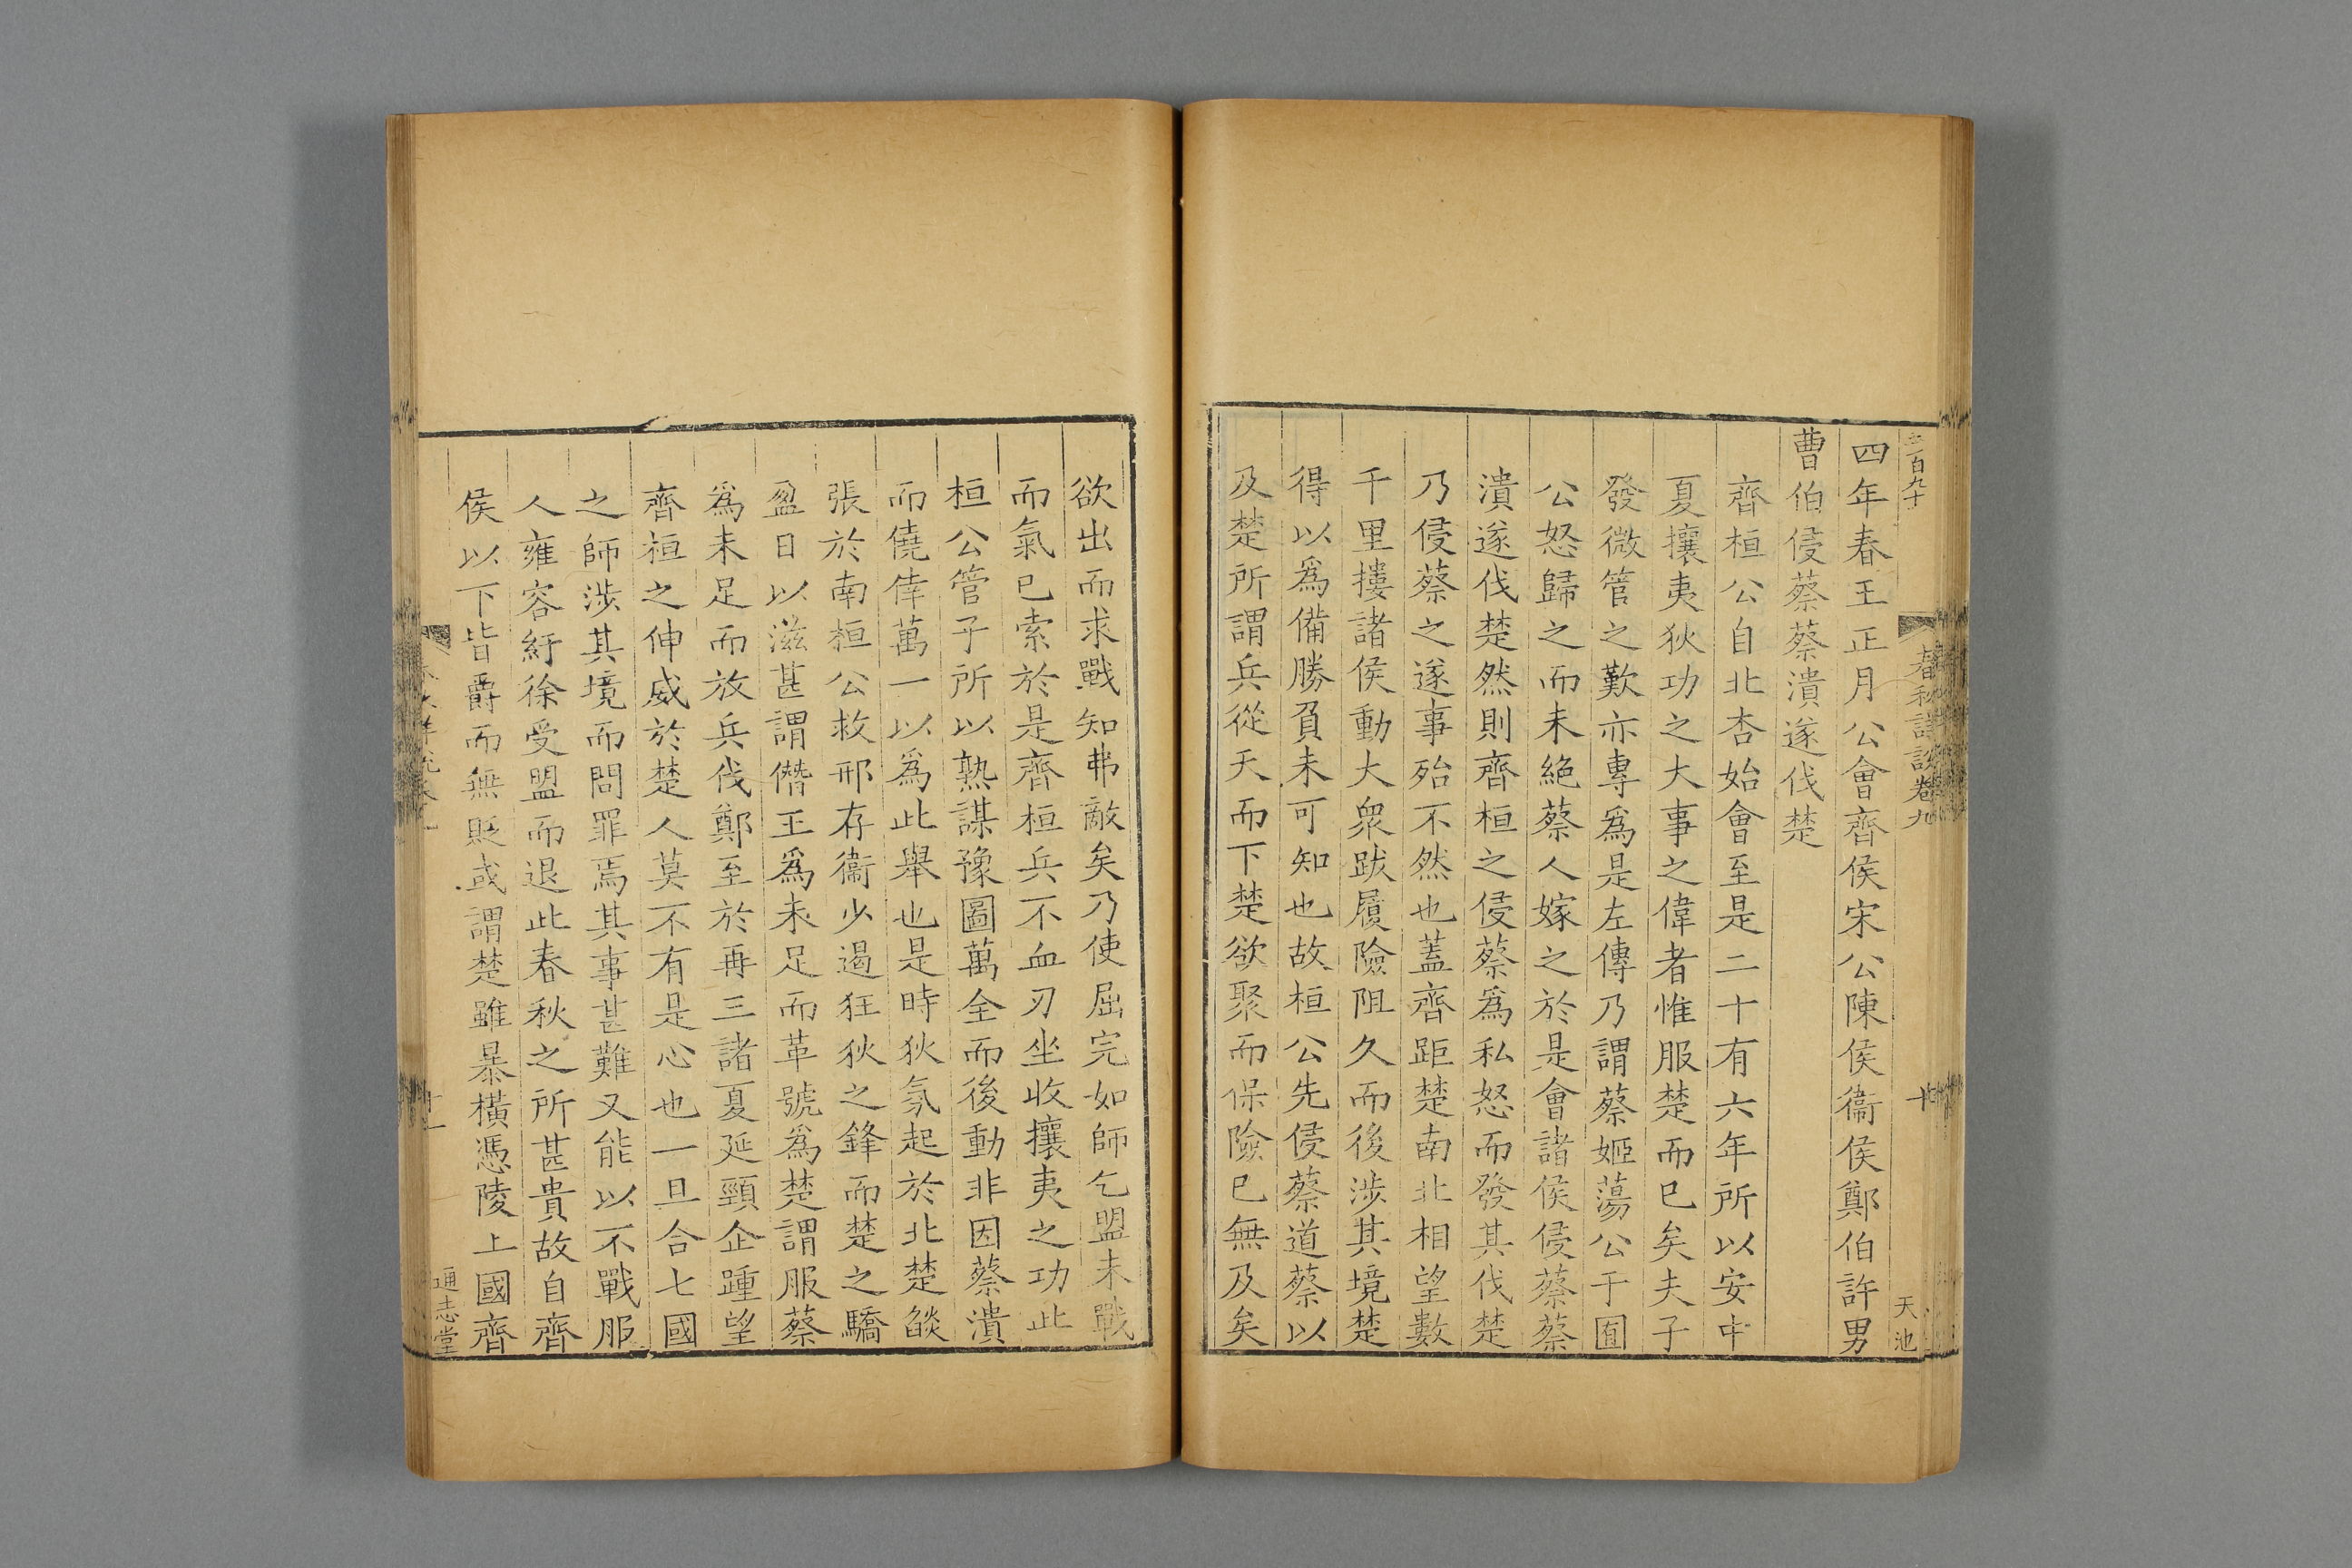 四年春王正月公會齊侯宋公陳侯衞侯鄭伯許男
曹伯侵蔡蔡潰遂伐楚
齊桓公自北杏始會至是二十有六年所以安中
夏攘夷狄功之大事之偉者惟服楚而已矣夫子
發微管之歎亦專爲是左傳乃謂蔡姬蕩公于囿
公怒歸之而未絕蔡人嫁之於是會諸侯侵蔡蔡
潰遂伐楚然則齊桓之侵蔡爲私怒而發其伐楚
乃侵蔡之遂事殆不然也蓋齊距楚南北相望數
千里摟諸侯動大衆跋履險阻久而後涉其境楚
得以爲備勝負未可知也故桓公先侵蔡道蔡以
及楚所謂兵從天而下楚欲聚而保險已無及矣
欲出而求戰知弗敵矣乃使屈完如師乞盟未戰
而氣已索於是齊桓兵不血刃坐收攘夷之功此
桓公管子所以熟謀豫圖萬全而後動非因蔡潰
而僥倖萬一以爲此舉也是時狄氛起於北楚燄
張於南桓公救邢存衞少遏狂狄之鋒而楚之驕
盈日以滋甚謂僭王爲未足而革號爲楚謂服蔡
爲未足而放兵伐鄭至於再三諸夏延頸企踵望
齊桓之伸威於楚人莫不有是心也一旦合七國
之師涉其境而問罪焉其事甚難又能以不戰服
人雍容紆徐受盟而退此春秋之所甚貴故自齊
侯以下皆爵而無貶或謂楚雖暴橫憑陵上國齊
二百九十
春秋詳說卷九
十
天池
十一
通志堂